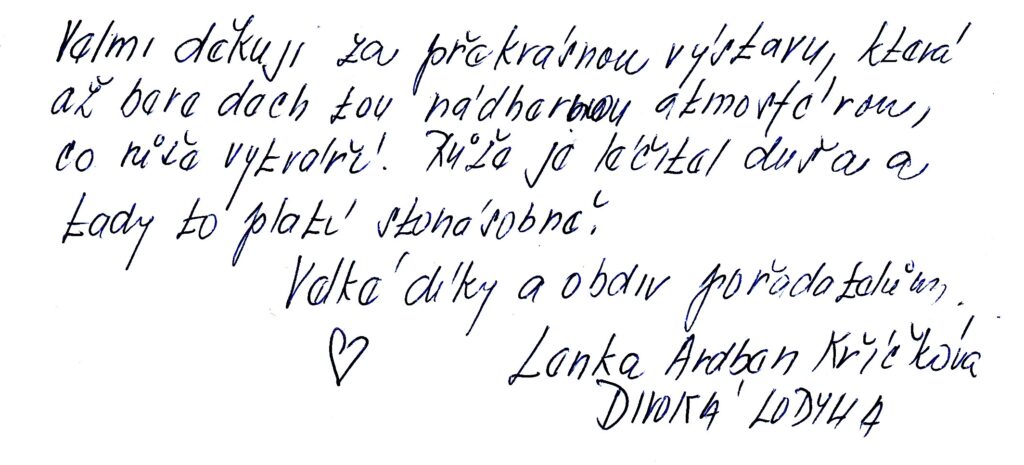 Velmi děkuji za překrásnou výstavu, která
až bere dech tou nádhernou atmosférou,
co růže vytváří. Růže je léčitel duše a
tady to platí stonásobně.
Velké díky a obdiv pořadatelům.
Lenka Ardban Kříčková
DIVOKÁ LODYHA